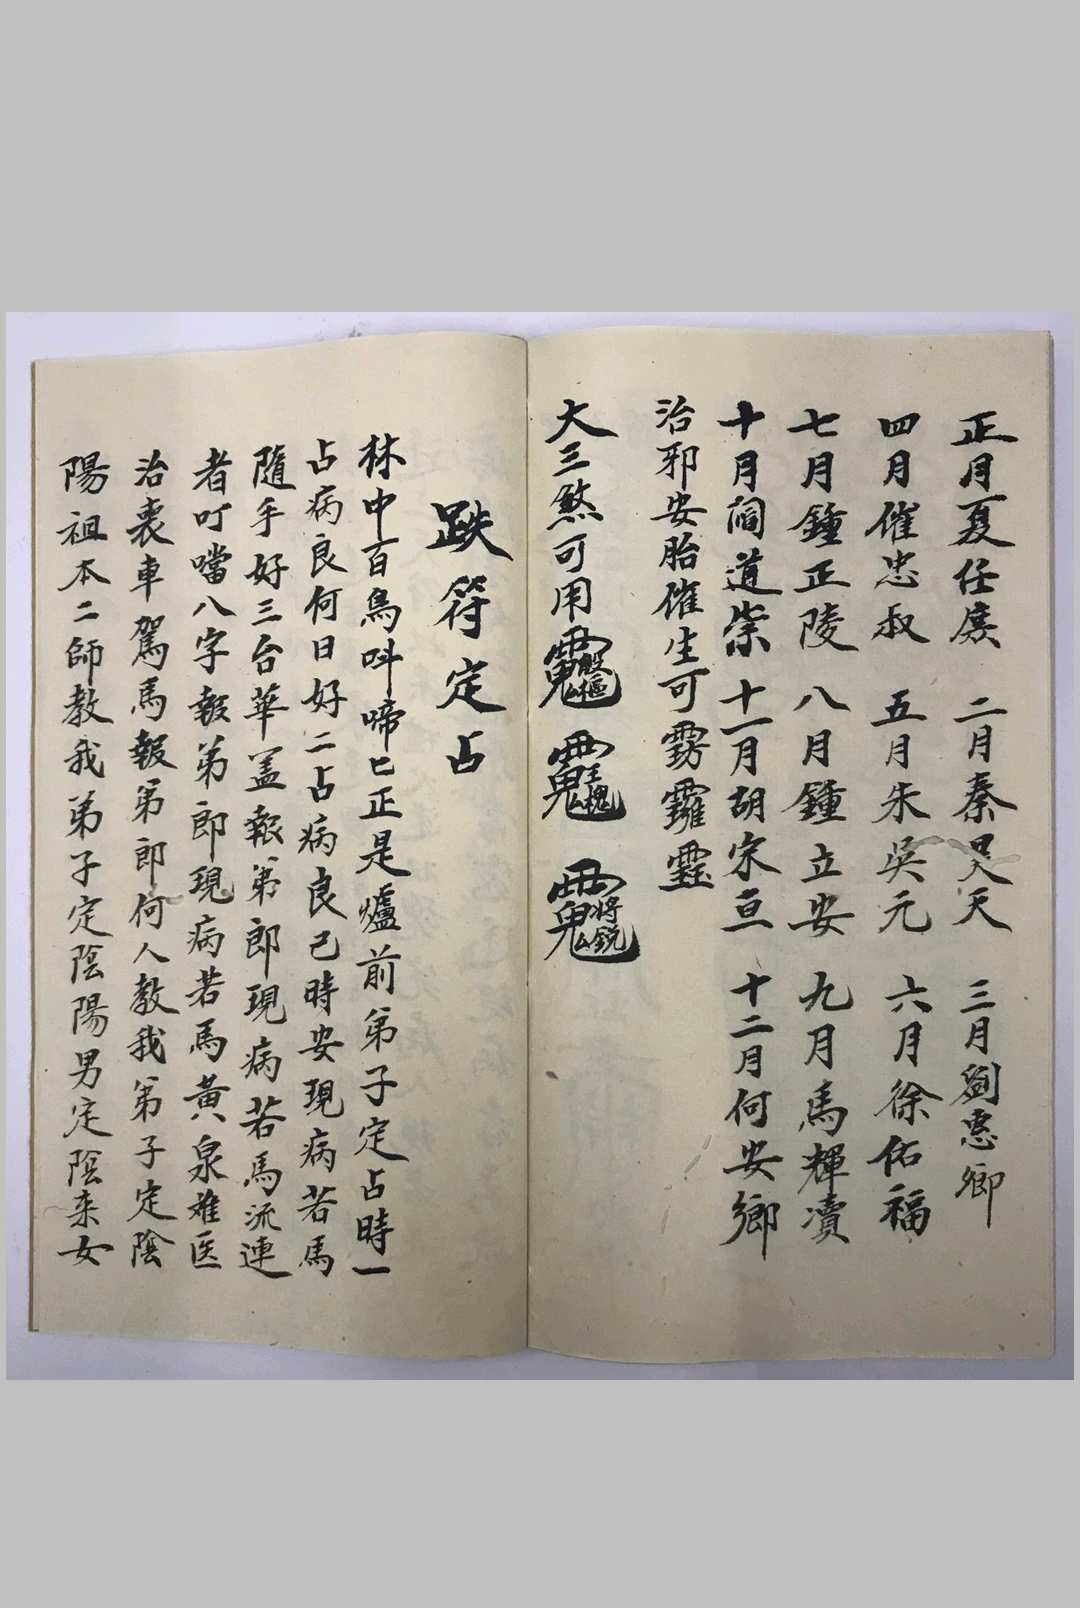 正月夏任廣 二月秦昊天 三月劉惠卿
四月催忠叔 五月朱吳元 六月徐佑福
七月鐘正陵 八月鐘立安 九月馬輝瀆
十月閻道崇 十一月胡宋亘 十二月何安鄉
治邪安胎催生可
大三煞可用
跌符定占
林中百鳥呌啼匕正是爐前弟子定占時一
占病良何日好二占病良己時安現病若馬
隨手好三台華盖報弟郎現病若馬流連
者叮噹八字報弟郎現病若馬黃泉难医
治喪車駕馬報弟郎何人教我弟子定陰
陽祖本二師教我弟子定陰陽男定陰来女